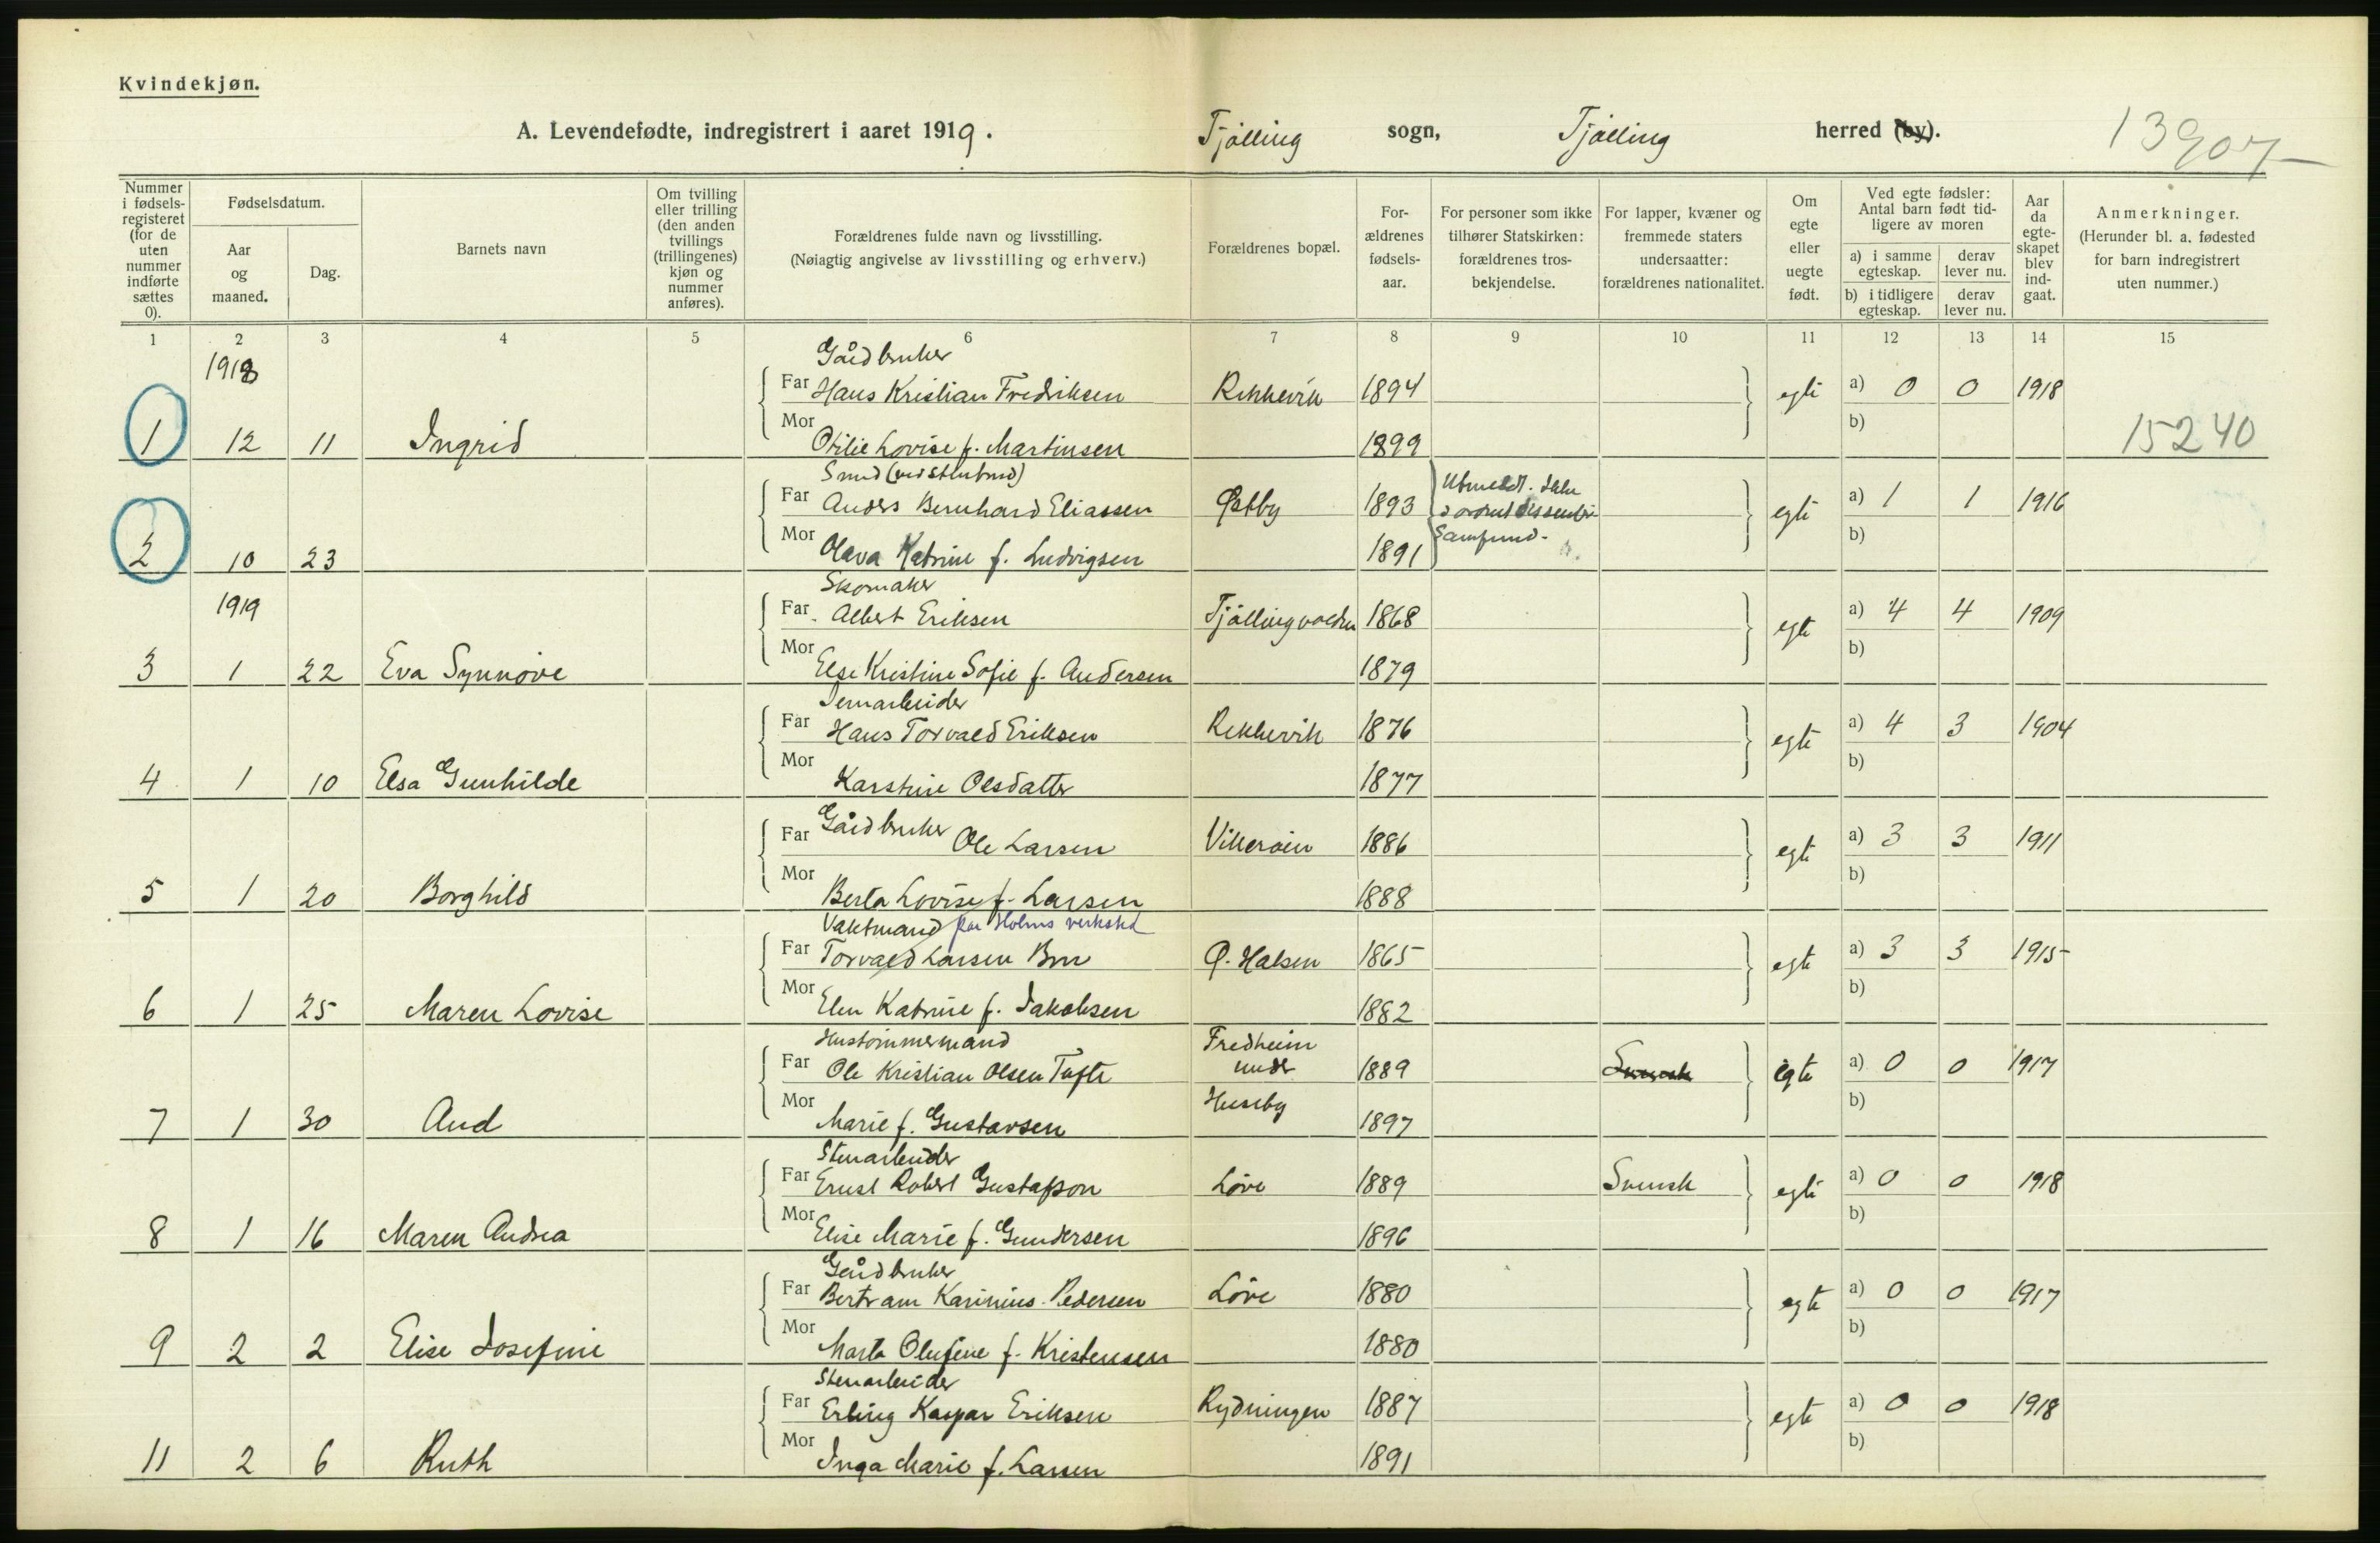 Kvindekjøn.
A. Levendefødte, indregistrert i aaret 1919. Tjølling sogn, Tjølling herred (by).
13907
Nummer i fødsels-registeret (for de uten nummer indførte sættes 0).
Fødselsdatum.
Aar og maaned.
Dag.
Barnets navn
Om tvilling eller trilling (den anden tvillings (trillingenes) kjøn og nummer anføres).
Forældrenes fulde navn og livsstilling.
(Nøiagtig angivelse av livsstilling og erhverv.)
Forældrenes bopæl.
For-ældrenes fødsels-aar.
For personer som ikke tilhører Statskirken: forældrenes tros-bekjendelse.
For lapper, kvæner og fremmede staters undersaatter: forældrenes nationalitet.
Om egte eller uegte født.
Ved egte fødsler: Antal barn født tid-ligere av moren
a) i samme egteskap. derav lever nu.
b) i tidligere egteskap. derav lever nu.
Aar da egte-skapet blev ind-gaat.
Anmerkninger.
(Herunder bl. a. fødested for barn indregistrert uten nummer.)
1 2 3 4 5 6 7 8 9 10 11 12 13 14 15
1918 Gårdbruker
Far Hans Kristian Fredriksen Rekkevik 1894 egte a) 0 0 1918
1 12 11 Ingrid Mor Otilie Lovise f. Martinsen 1899 b) 15240
Smed
Far Anders Bernhard Eliassen Østby 1893 Utmeldt. Ikke samfund. egte a) 1 1 1916
2 10 23 Mor Olava Katrine f. Ludvigsen 1891 b)
1919 Skomaker
Far Albert Eriksen Tjøllingvolden 1868 egte a) 4 4 1909
3 1 22 Eva Synnøve Mor Else Kristine Sofie f. Andersen 1879 b)
Jernarbeider
Far Hans Torvald Eriksen Rekkevik 1876 egte a) 4 3 1904
4 1 10 Elsa Gunhilde Mor Karstine Olsdatter 1877 b)
Far Gårdbruker Ole Larsen Vikerøien 1886 egte a) 3 3 1911
5 1 20 Borghild Mor Berta Lovise f. Larsen 1888 b)
Vaktmand paa Holms verksted
Far Torvald Larsen Bre Ø. Halsen 1865 egte a) 3 3 1915
6 1 25 Maren Lovise Mor Elen Katrine f. Jakobsen 1882 b)
Hustømmermand
Far Ole Kristian Olsen Tufte Fredheim under Huseby 1889 Svensk egte a) 0 0 1917
7 1 30 Aud Mor Marie f. Gustavsen 1897 b)
Stenarbeider
Far Ernst Robert Gustafson Løve 1889 Svensk egte a) 0 0 1918
8 1 16 Maren Andrea Mor Elise Marie f. Gundersen 1896 b)
Gårdbruker
Far Bertram Karinius Pedersen Løve 1880 egte a) 0 0 1917
9 2 2 Elise Josefine Mor Marta Olufine f. Kristensen 1880 b)
Stenarbeider
Far Erling Kaspar Eriksen Rydningen 1887 egte a) 0 0 1918
11 2 6 Ruth Mor Inga Marie f. Larsen 1891 b)